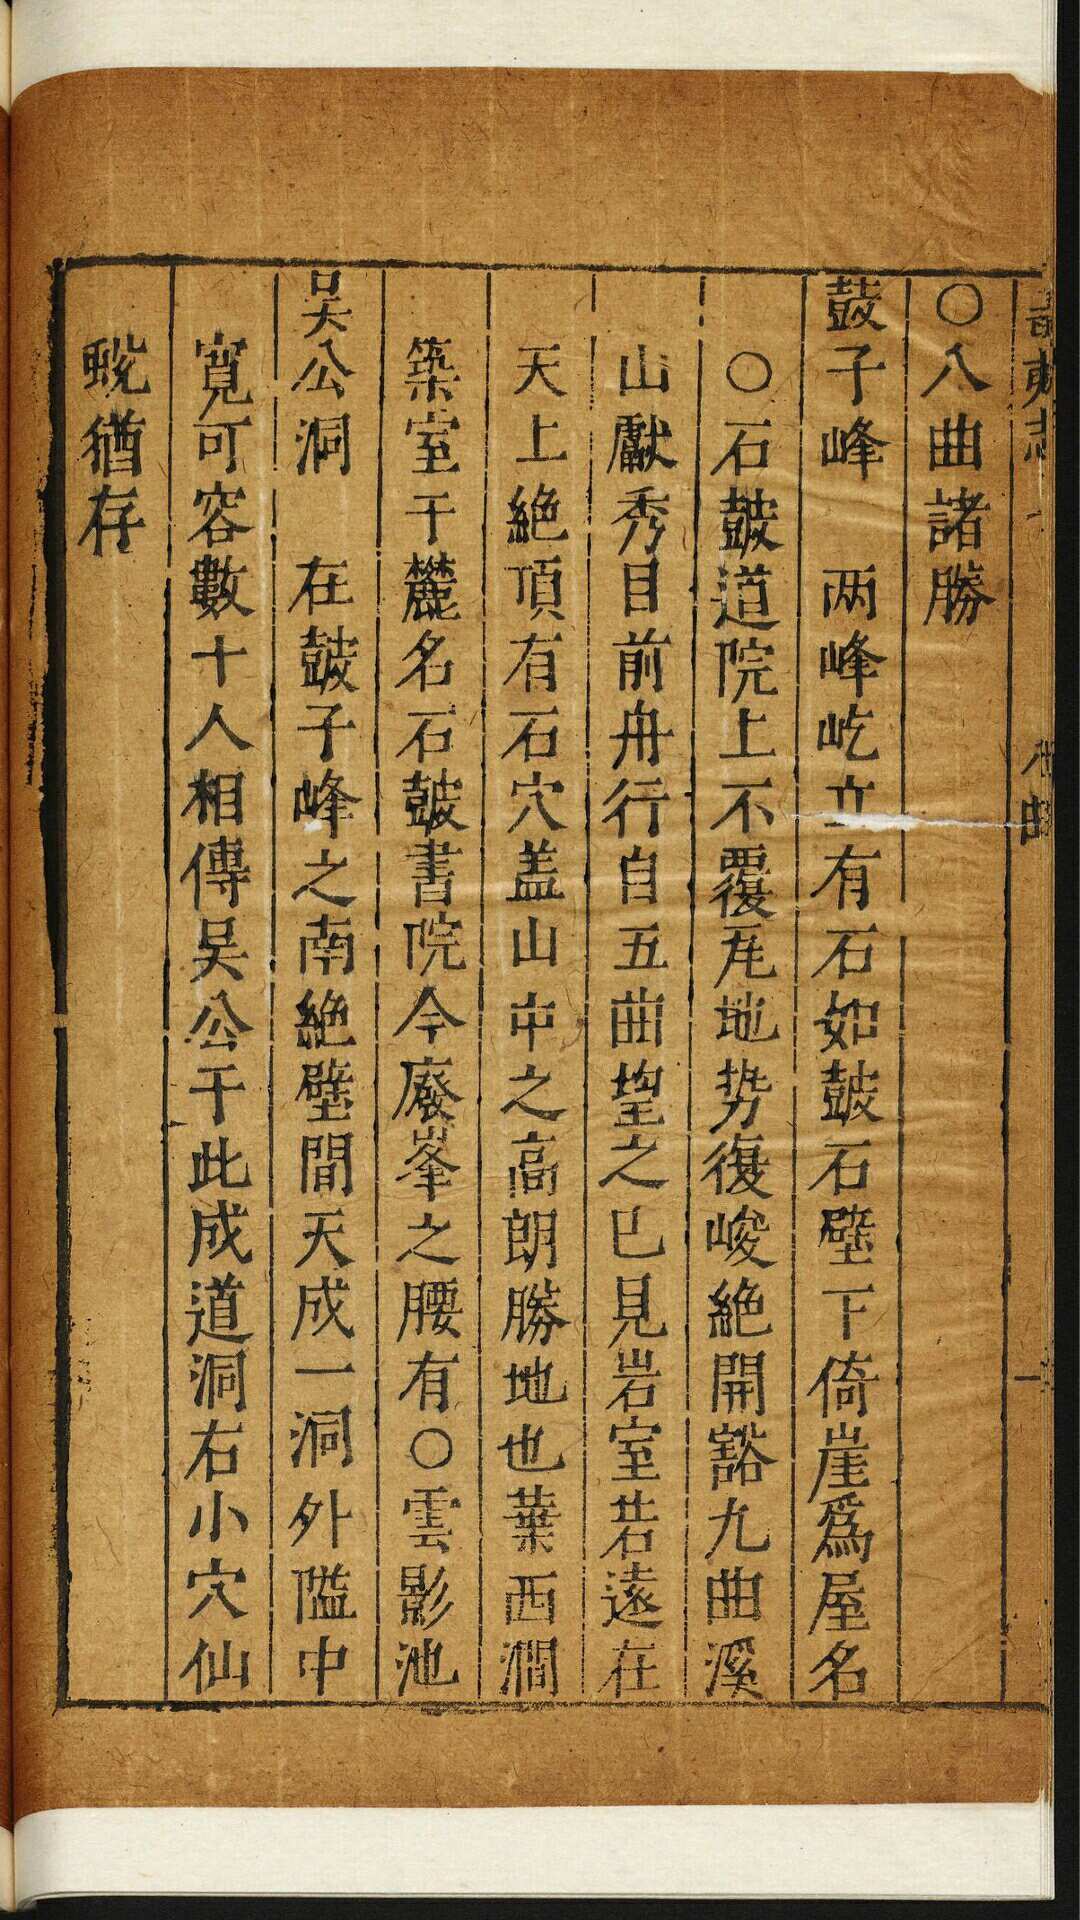 ○八曲諸勝
鼓子峰　两峰屹立有石如皷石壁下倚崖爲屋名
○石皷道院上不覆瓦地势復峻絶開豁九曲溪
山獻秀目前舟行自五曲望之已見岩室若遠在
天上絶頂有石穴盖山中之高朗勝地也葉西澗
築室于麓名石皷書院今廢峯之腰有○雲影池
吴公洞　在皷子峰之南絶壁間天成一洞外隘中
寛可容數十人相傳吴公于此成道洞右小穴仙
蛻猶存